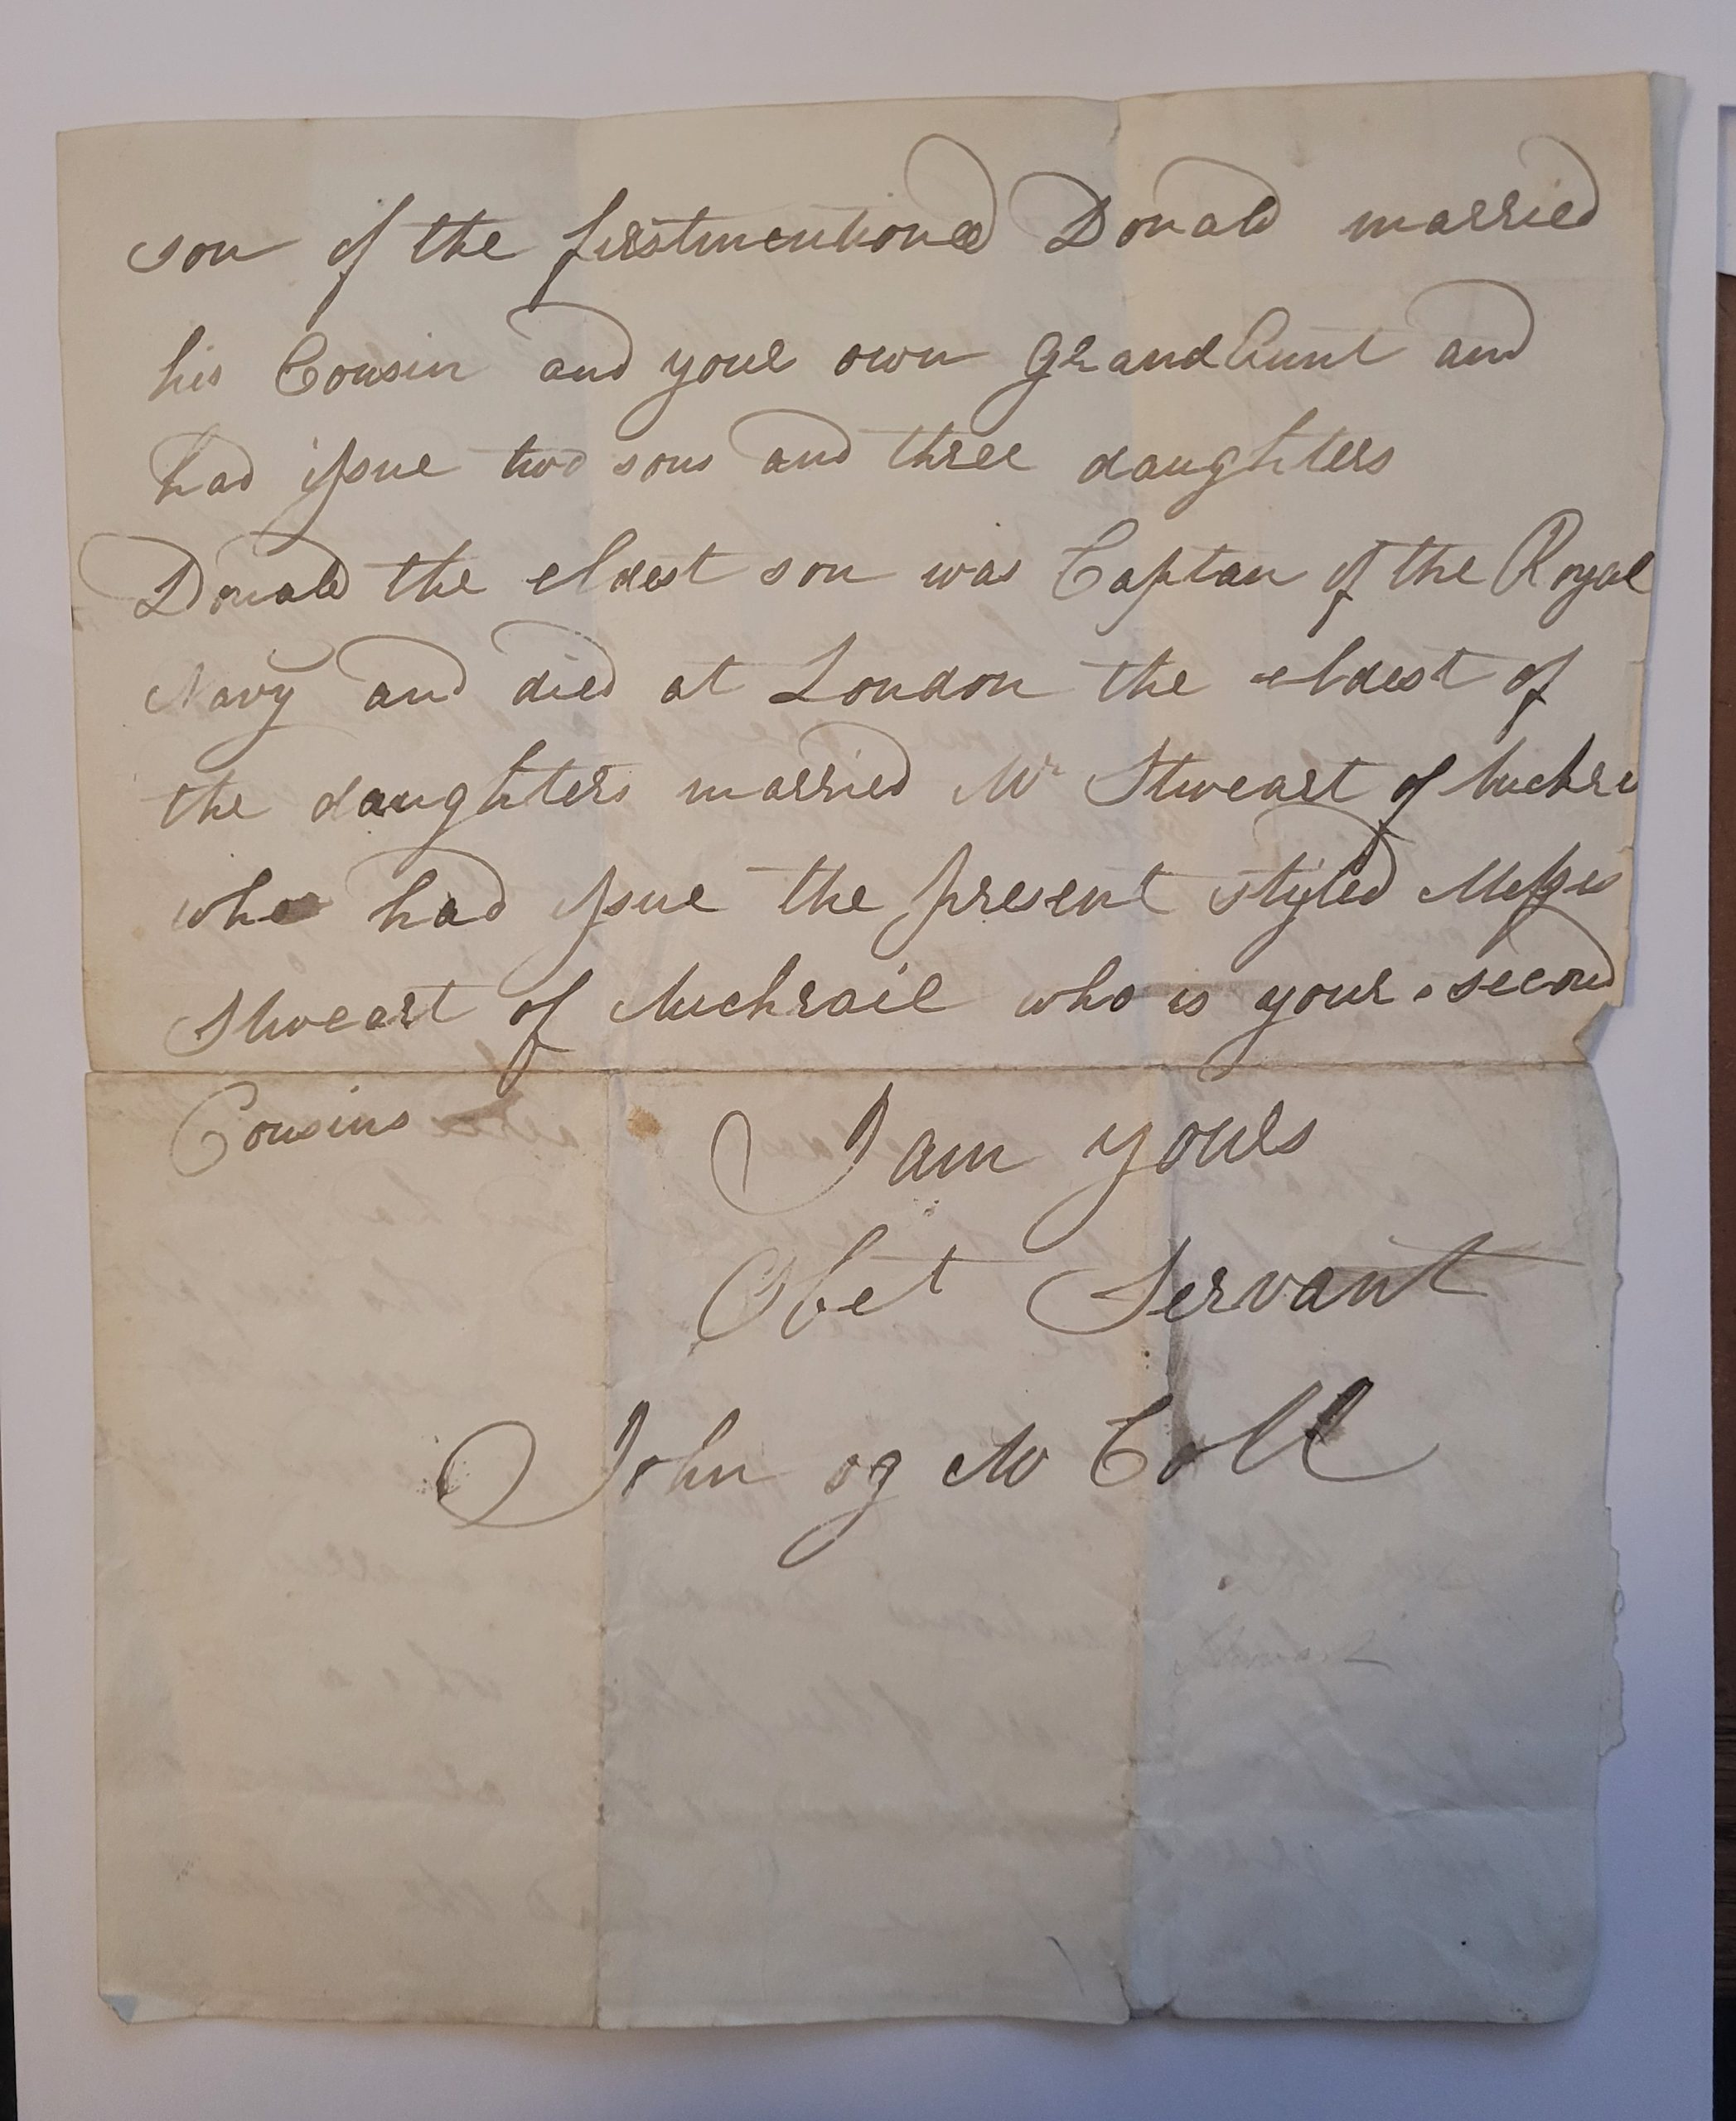 son of the firstmentioned Donald married
his Cousin and your own GrandAunt and
had issue two sons and three daughters
Donald the eldest son was Captan of the Royal
Navy and died at London the eldest of
the daughters married Mr Stweart of
who had issue the present styled
Stweart of Auchrail who is your second
Cousins
I am yours
Obet Servant
John og Mc Coll